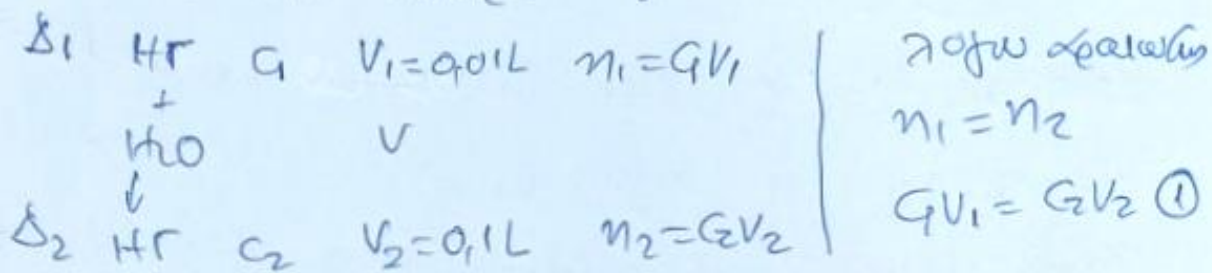 Δ1 ΗΓ C1 V1=0,01L n1=C1V1
+
H2O V
↓
Δ2 ΗΓ C2 V2=0,1L n2=C2V2
λόγω αραίωσης
n1=n2
C1V1=C2V2 ①